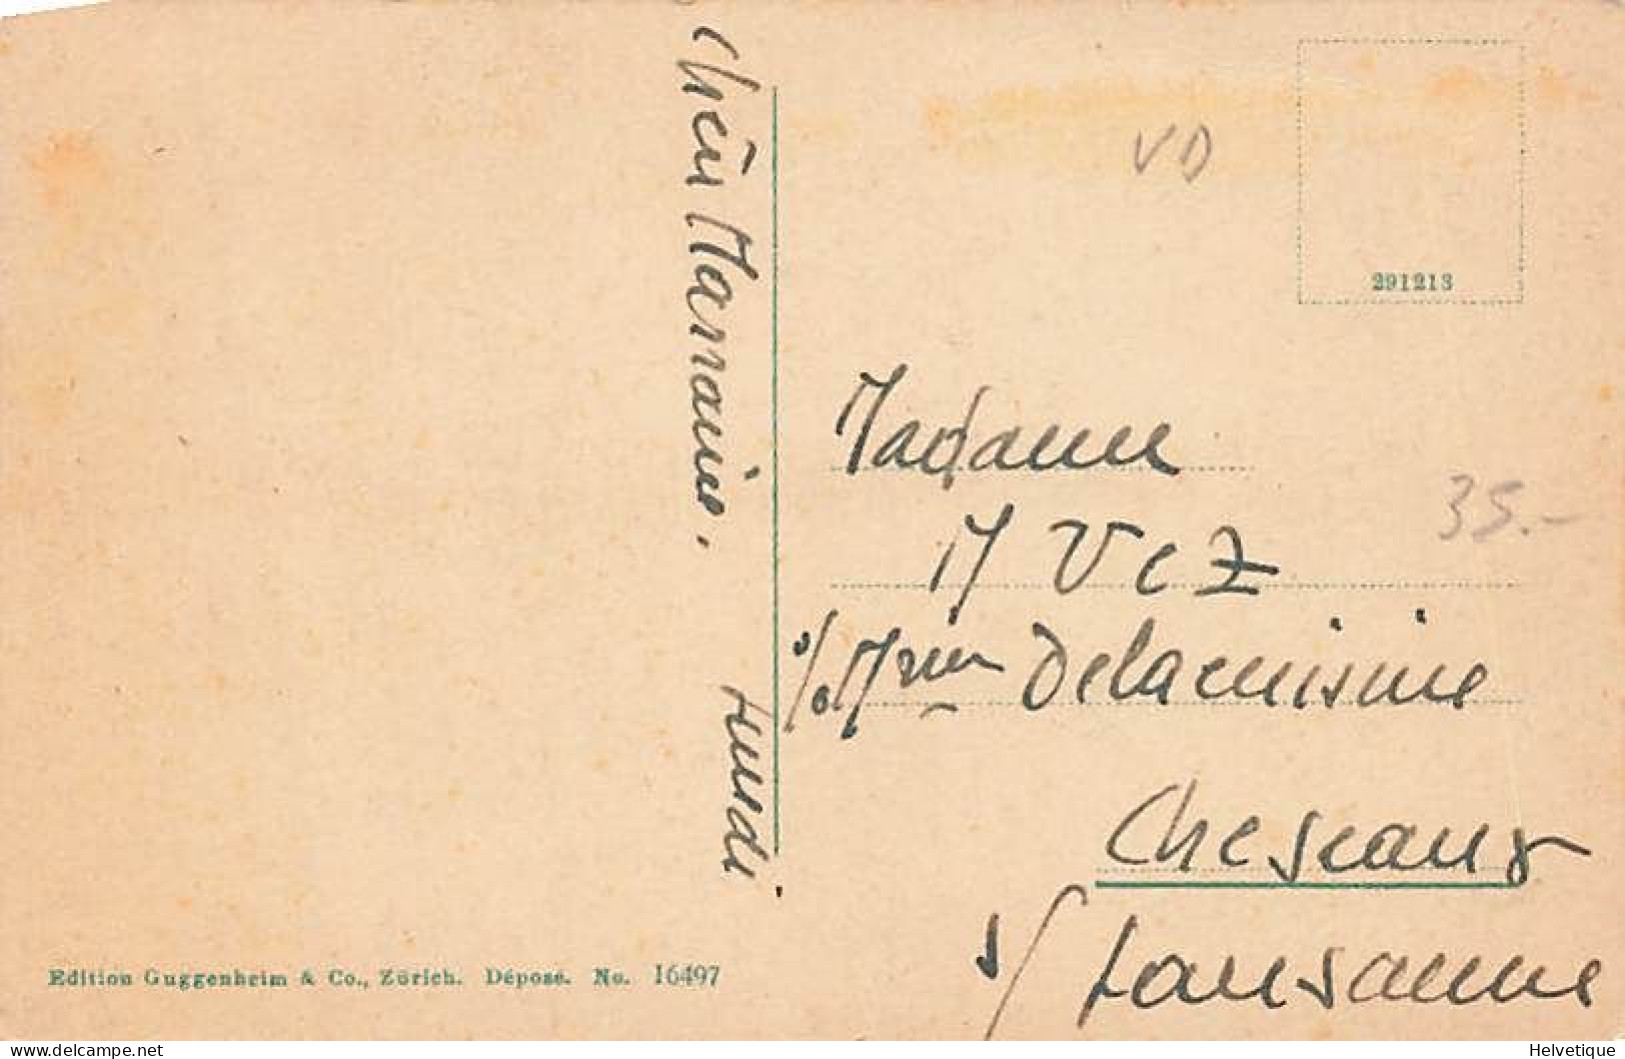 Chère Marraine.
Hurdi
VD
291213
Madame
M Vez
35.-
Delacuisine
Cheseaux
s/ Lausanne
Edition Guggenheim & Co., Zürich. Déposé. No. 16497
delcampe.net
Helvetique